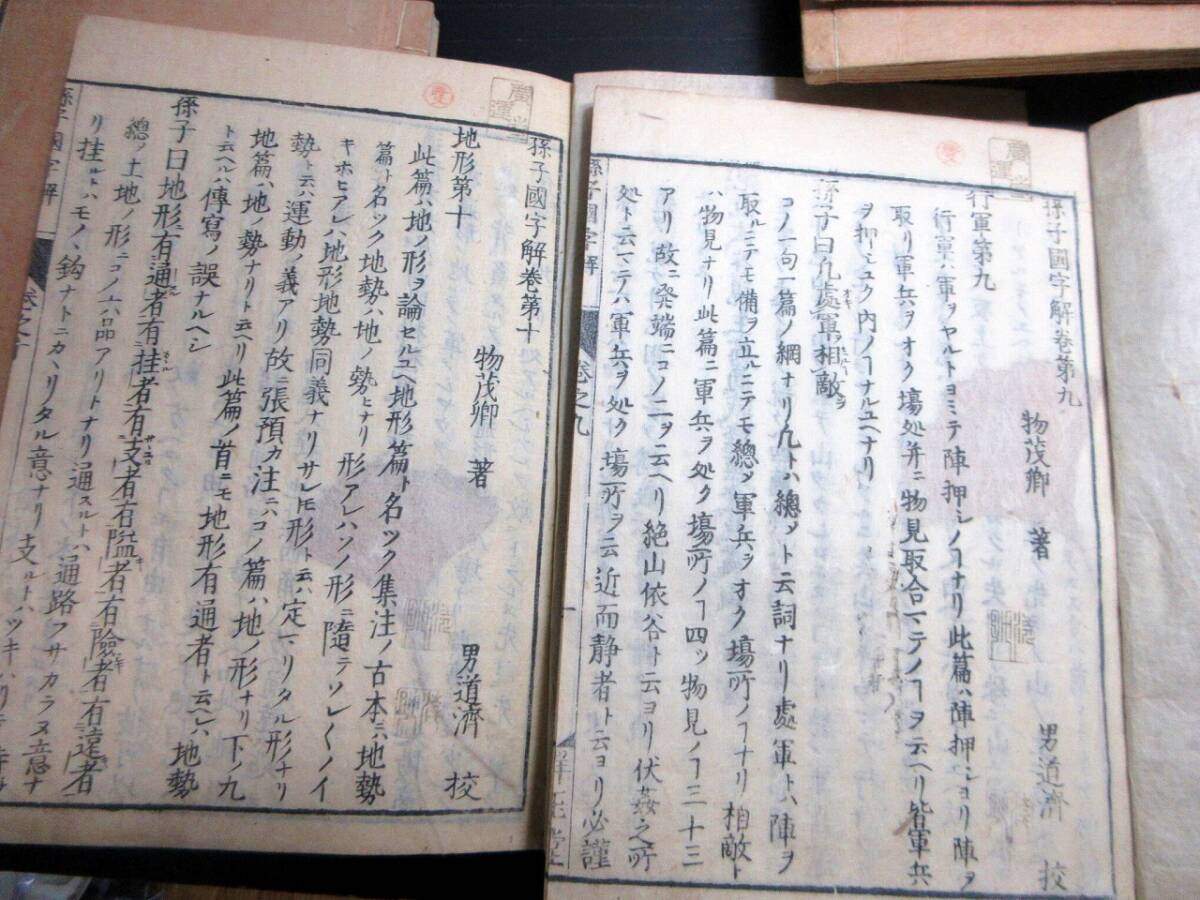 孫子國字解卷第九
物茂卿 著 男道濟 校
行軍第九
行軍ハ軍ヲヤルトヨミテ陣押シノヿナリ此篇ハ陣押シヨリ陣ヲ
取リ軍兵ヲオク塲処并ニ物見取合マテノヿヲ云ヘリ皆軍兵
ヲ押シユク内ノヿナルユヘナリ
孫子曰凡處軍相敵
コノ一句一篇ノ綱ナリ凡トハ總ヲト云詞ナリ處軍トハ陣ヲ
取ルニテモ備ヲ立ルニテモ總ヲ軍兵ヲオク塲所ノヿナリ相敵ト
ハ物見ナリ此篇ニ軍兵ヲ処ク塲所ノヿ四ツ物見ノヿ三十三
アリ故ニ発端ニコノ二ヲ云ヘリ絶山依谷ト云ヨリ伏姦之所
処ト云マテハ軍兵ヲ処ク塲所ヲ云近而静者ト云ヨリ必謹
孫子國字解
卷之九
孫子國字解卷第十
物茂卿 著 男道濟 校
地形第十
此篇ハ地ノ形ヲ論セルユヘ地形篇ト名ツク集注ノ古本ニハ地勢
篇ト名ツク地勢ハ地ノ勢ヒナリ形アレハソノ形ニ隨テソレ〱ノイ
キホヒアレハ地形地勢同義ナリサレ𪜈形ト云ハ定マリタル形ナリ
勢ト云ハ運動ノ義アリ故ニ張預カ注ニハコノ篇ハ地ノ形ナリ下ノ九
地篇ハ地ノ勢ナリト云ヘリ此篇ノ首ニモ地形有通者ト云ヘハ地勢
ト云ヘルハ傳寫ノ誤ナルヘシ
孫子曰地形有通者有挂者有支者有隘者有險者有遠者
總ノ土地ノ形ニコノ六品アリトナリ通スルトハ通路フサカラヌ意ナ
リ挂ルトハモノヽ鈎ナトニカヽリタル意ナリ支ルトハツキ
孫子國字解
卷之十